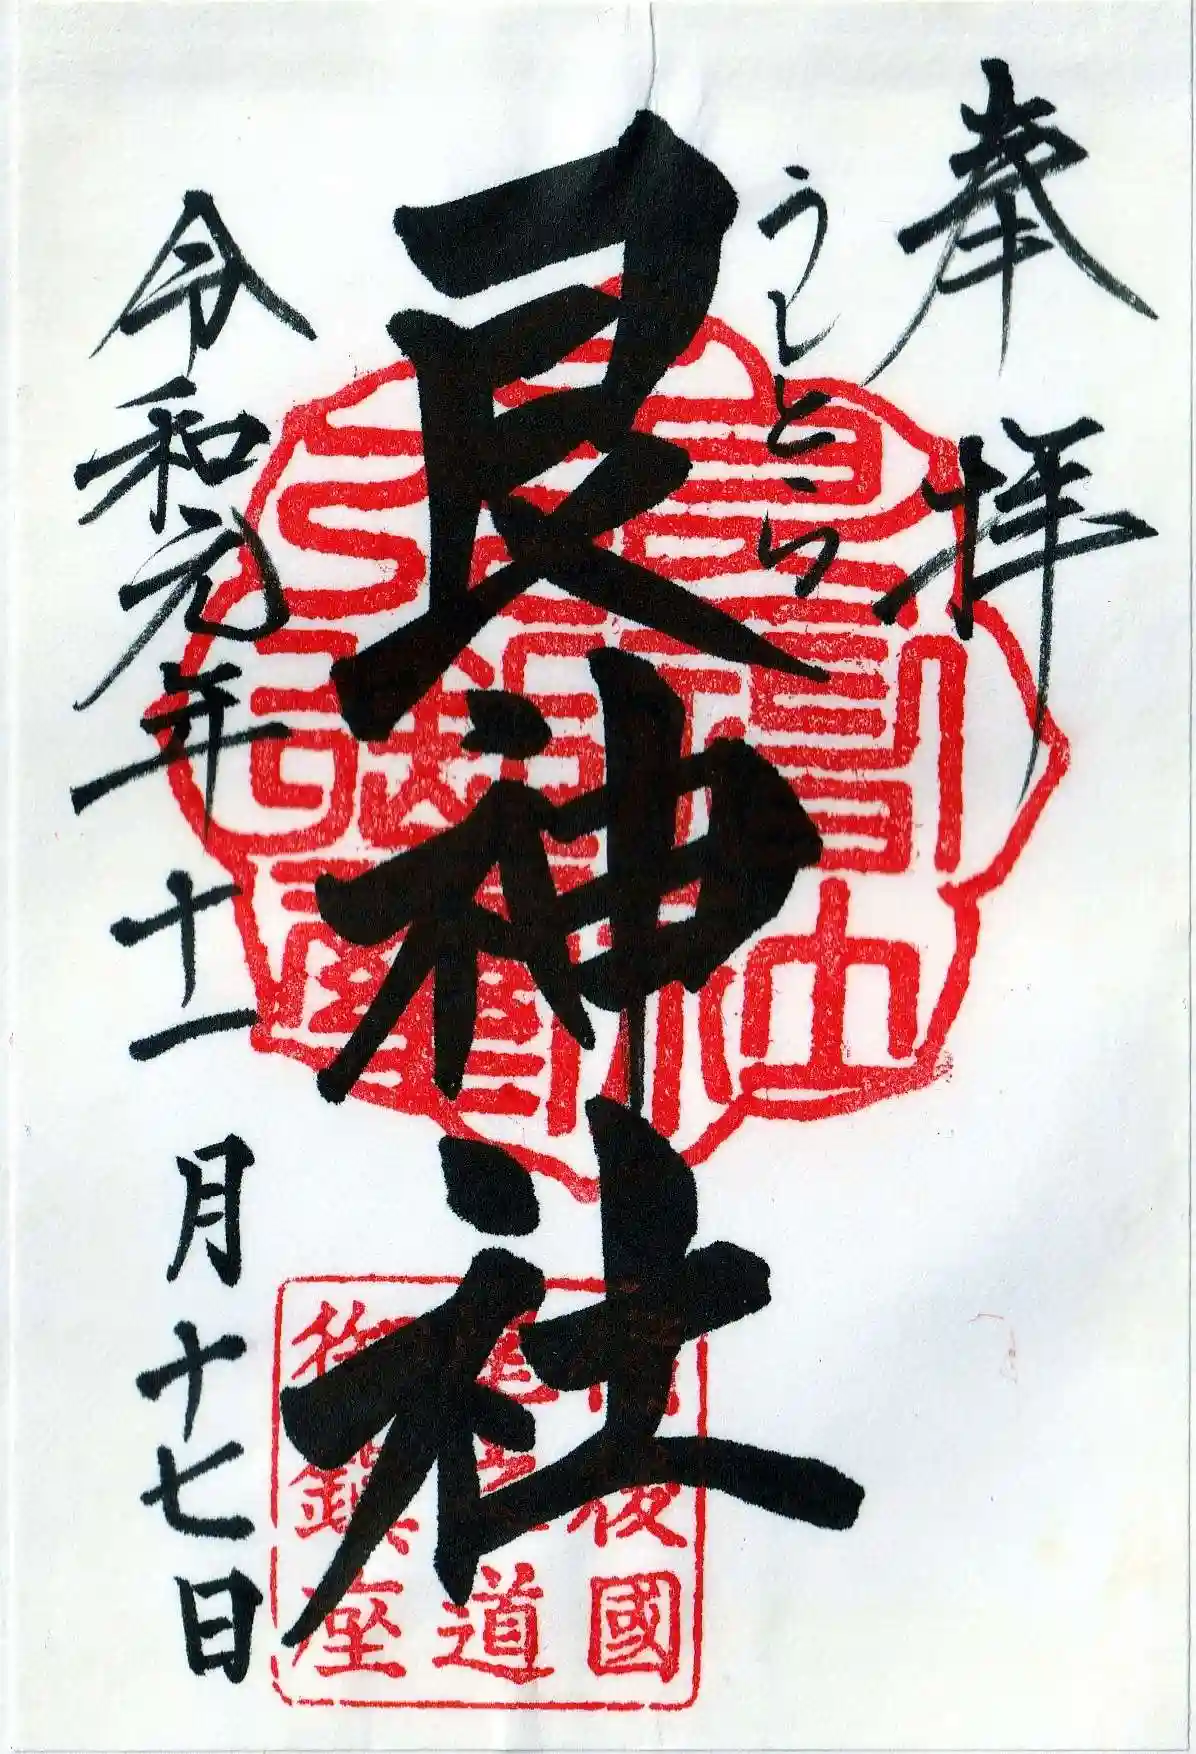 奉拝
うしとら
艮神社
令和元年十一月十七日
後國
道
鎮座